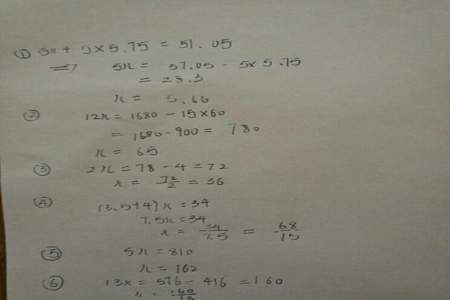 ① 5x + 5 × 5.75 = 51.05
⇒ 5x = 51.05 - 5 × 5.75
= 23.3
x = 5.66
② 12x = 1680 - 15 × 60
= 1680 - 900 = 780
x = 65
③ 2x = 78 - 4 = 72
x = 72/2 = 36
④ (3.5+4) x = 34
7.5x = 34
x = 34/7.5 = 68/15
⑤ 5x = 810
x = 162
⑥ 13x = 576 - 416 = 160
x = 160/13